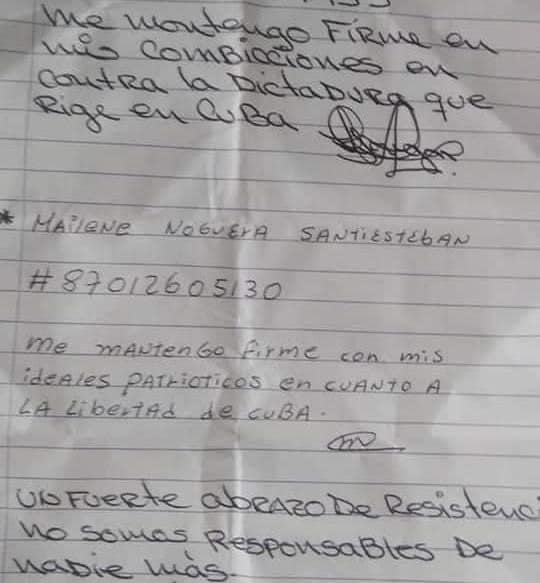 me montengo Firme en
mis Combicciones en
contra la Dictadura que
Rige en Cuba
* MAilENE NOGUERA SANTiEStEbAN
# 87012605130
me mantengo firme con mis
ideales patrioticos en cuanto a
LA Libertad de cubA.
m
UN Fuerte abrazo De Resistenc
no somos Responsables De
nadie más.